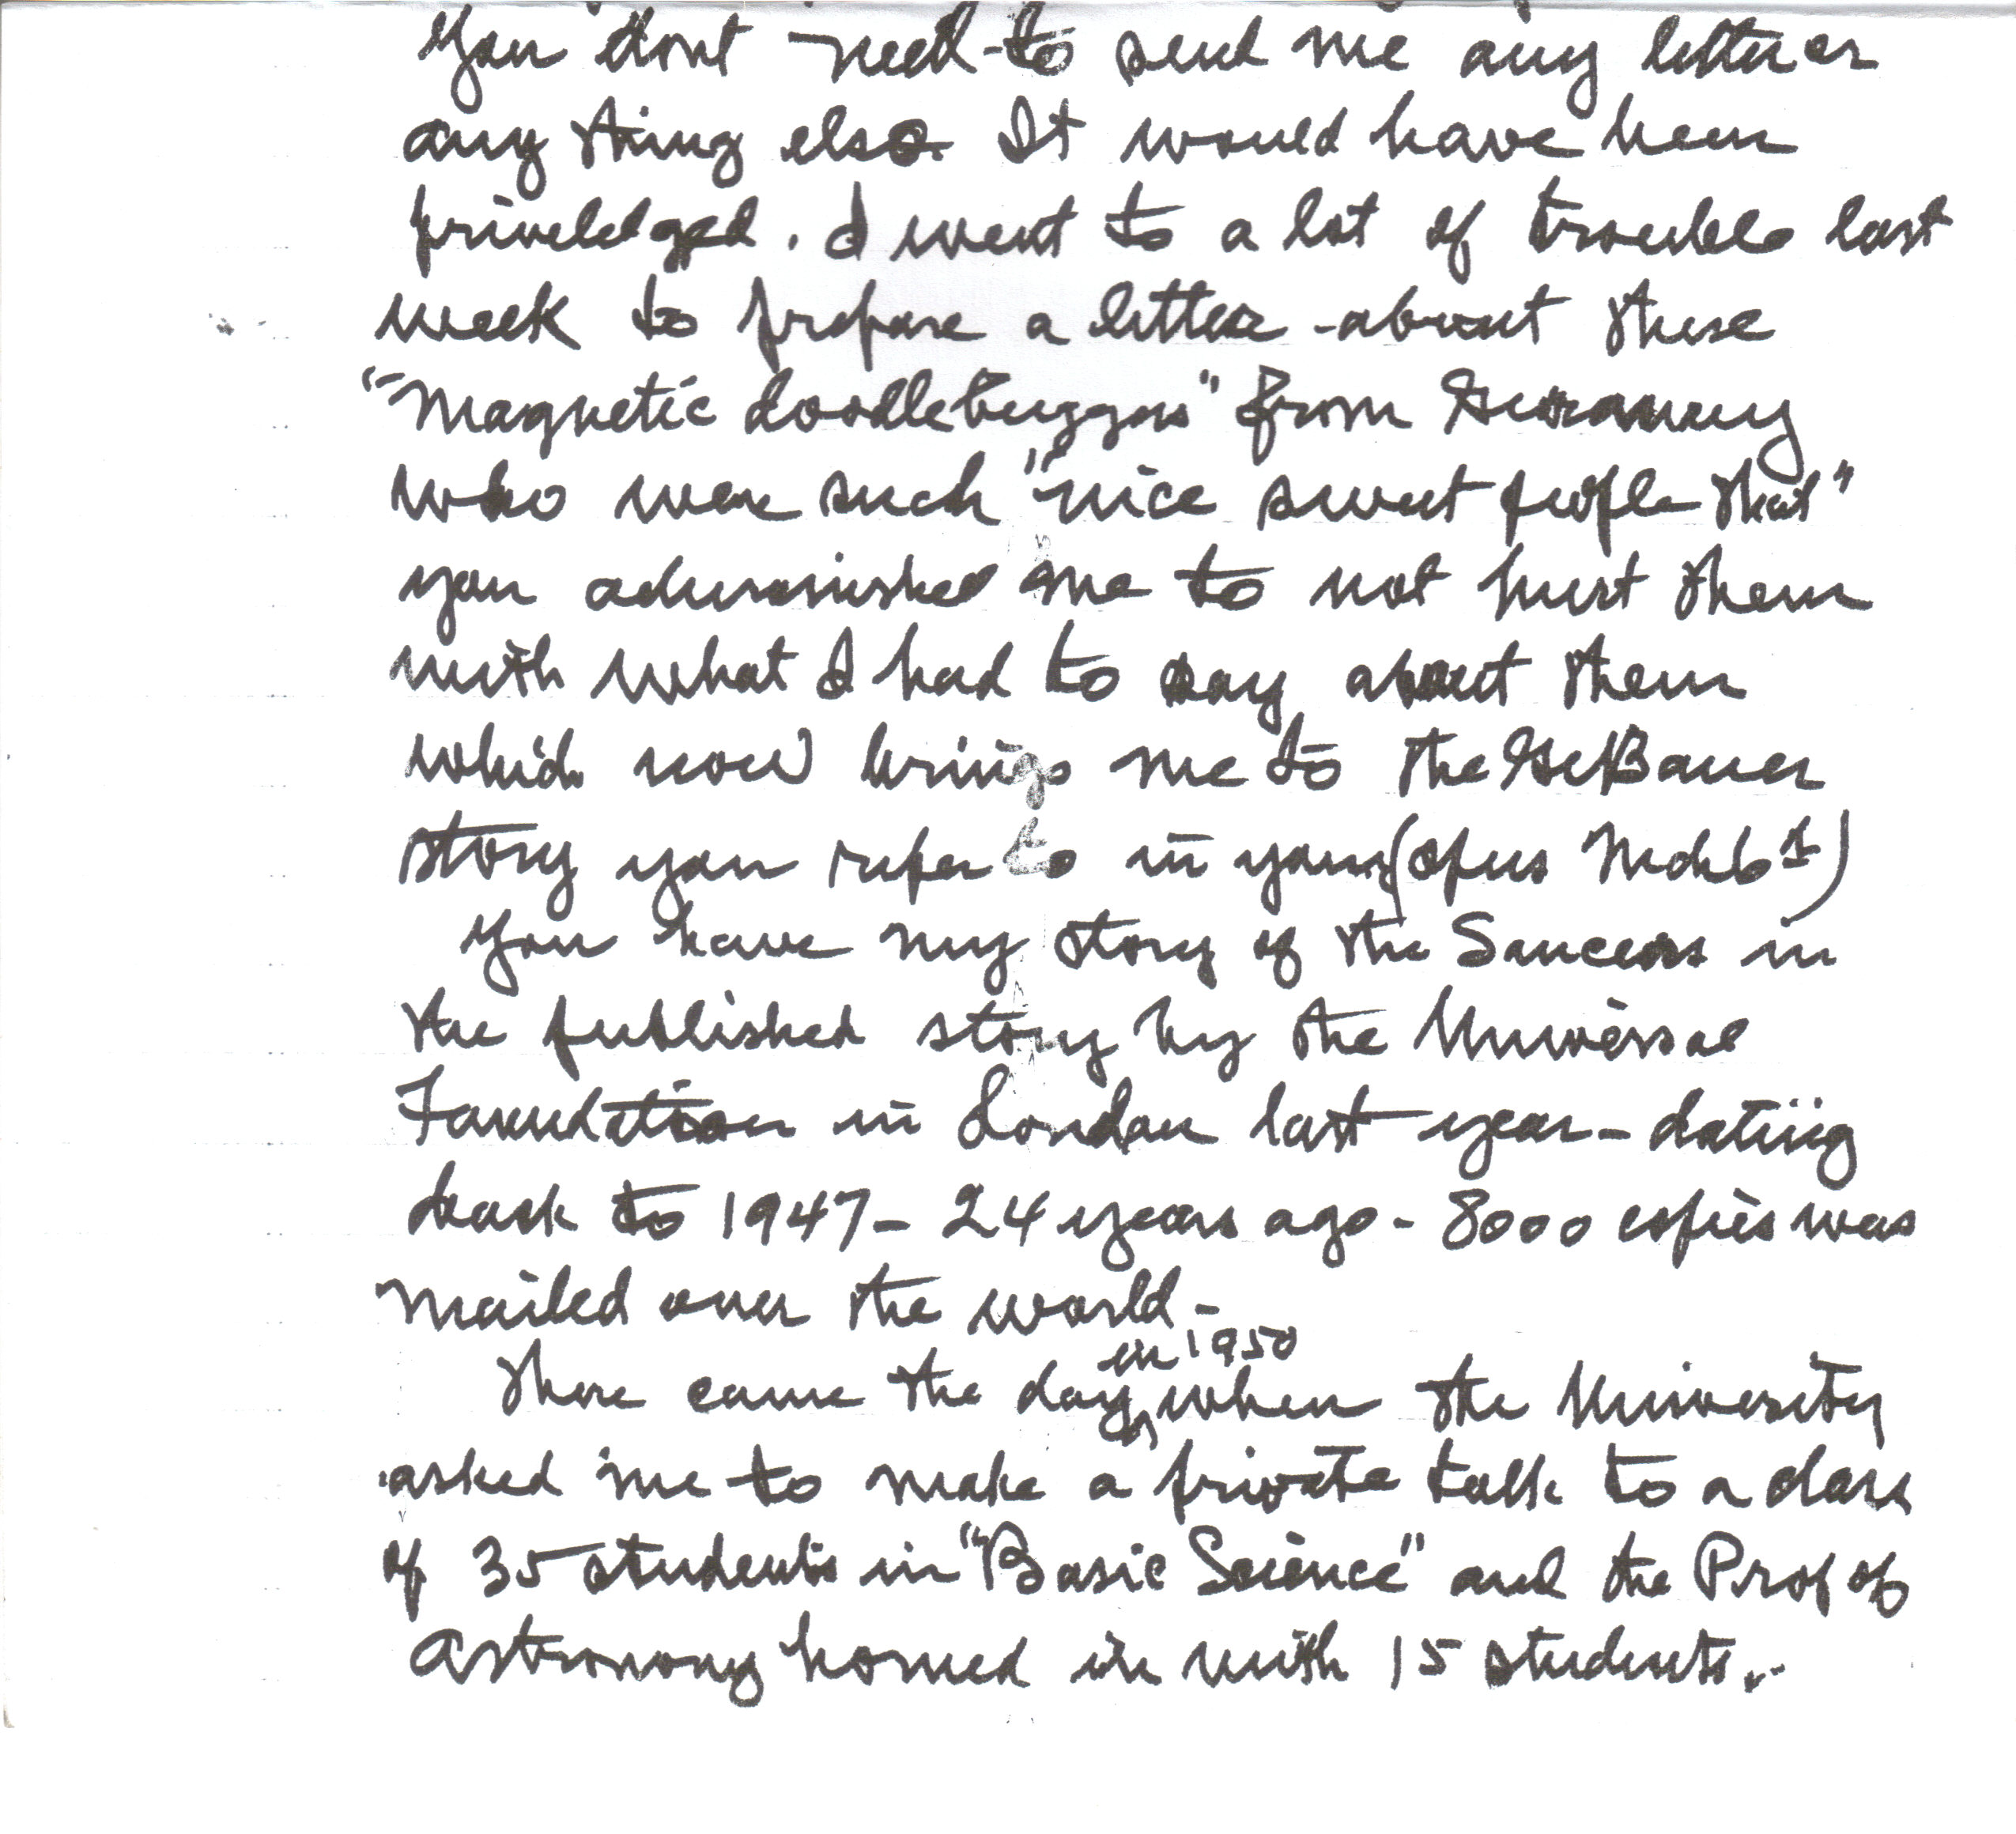 You dont need to send me any letter or
any thing else. It would have been
priveledged. I went to a lot of trouble last
week to prepare a letter about these
"Magnetic doodlebuggers" from Germany
who were such "nice sweet people that"
you admonished me to not hurt them
with what I had to say about them
which now brings me to the GeBauer
story you refer to in your (opus Mch 6
You have my story of the Saucers in
the published story by the Universal
Foundation in London last year - dating
back to 1947 - 24 years ago - 8000 copies was
mailed over the world -
There came the day in 1950 when the University
asked me to make a private talk to a class
of 35 students in "Basic Science" and the Prof of
Astronomy horned in with 15 students..